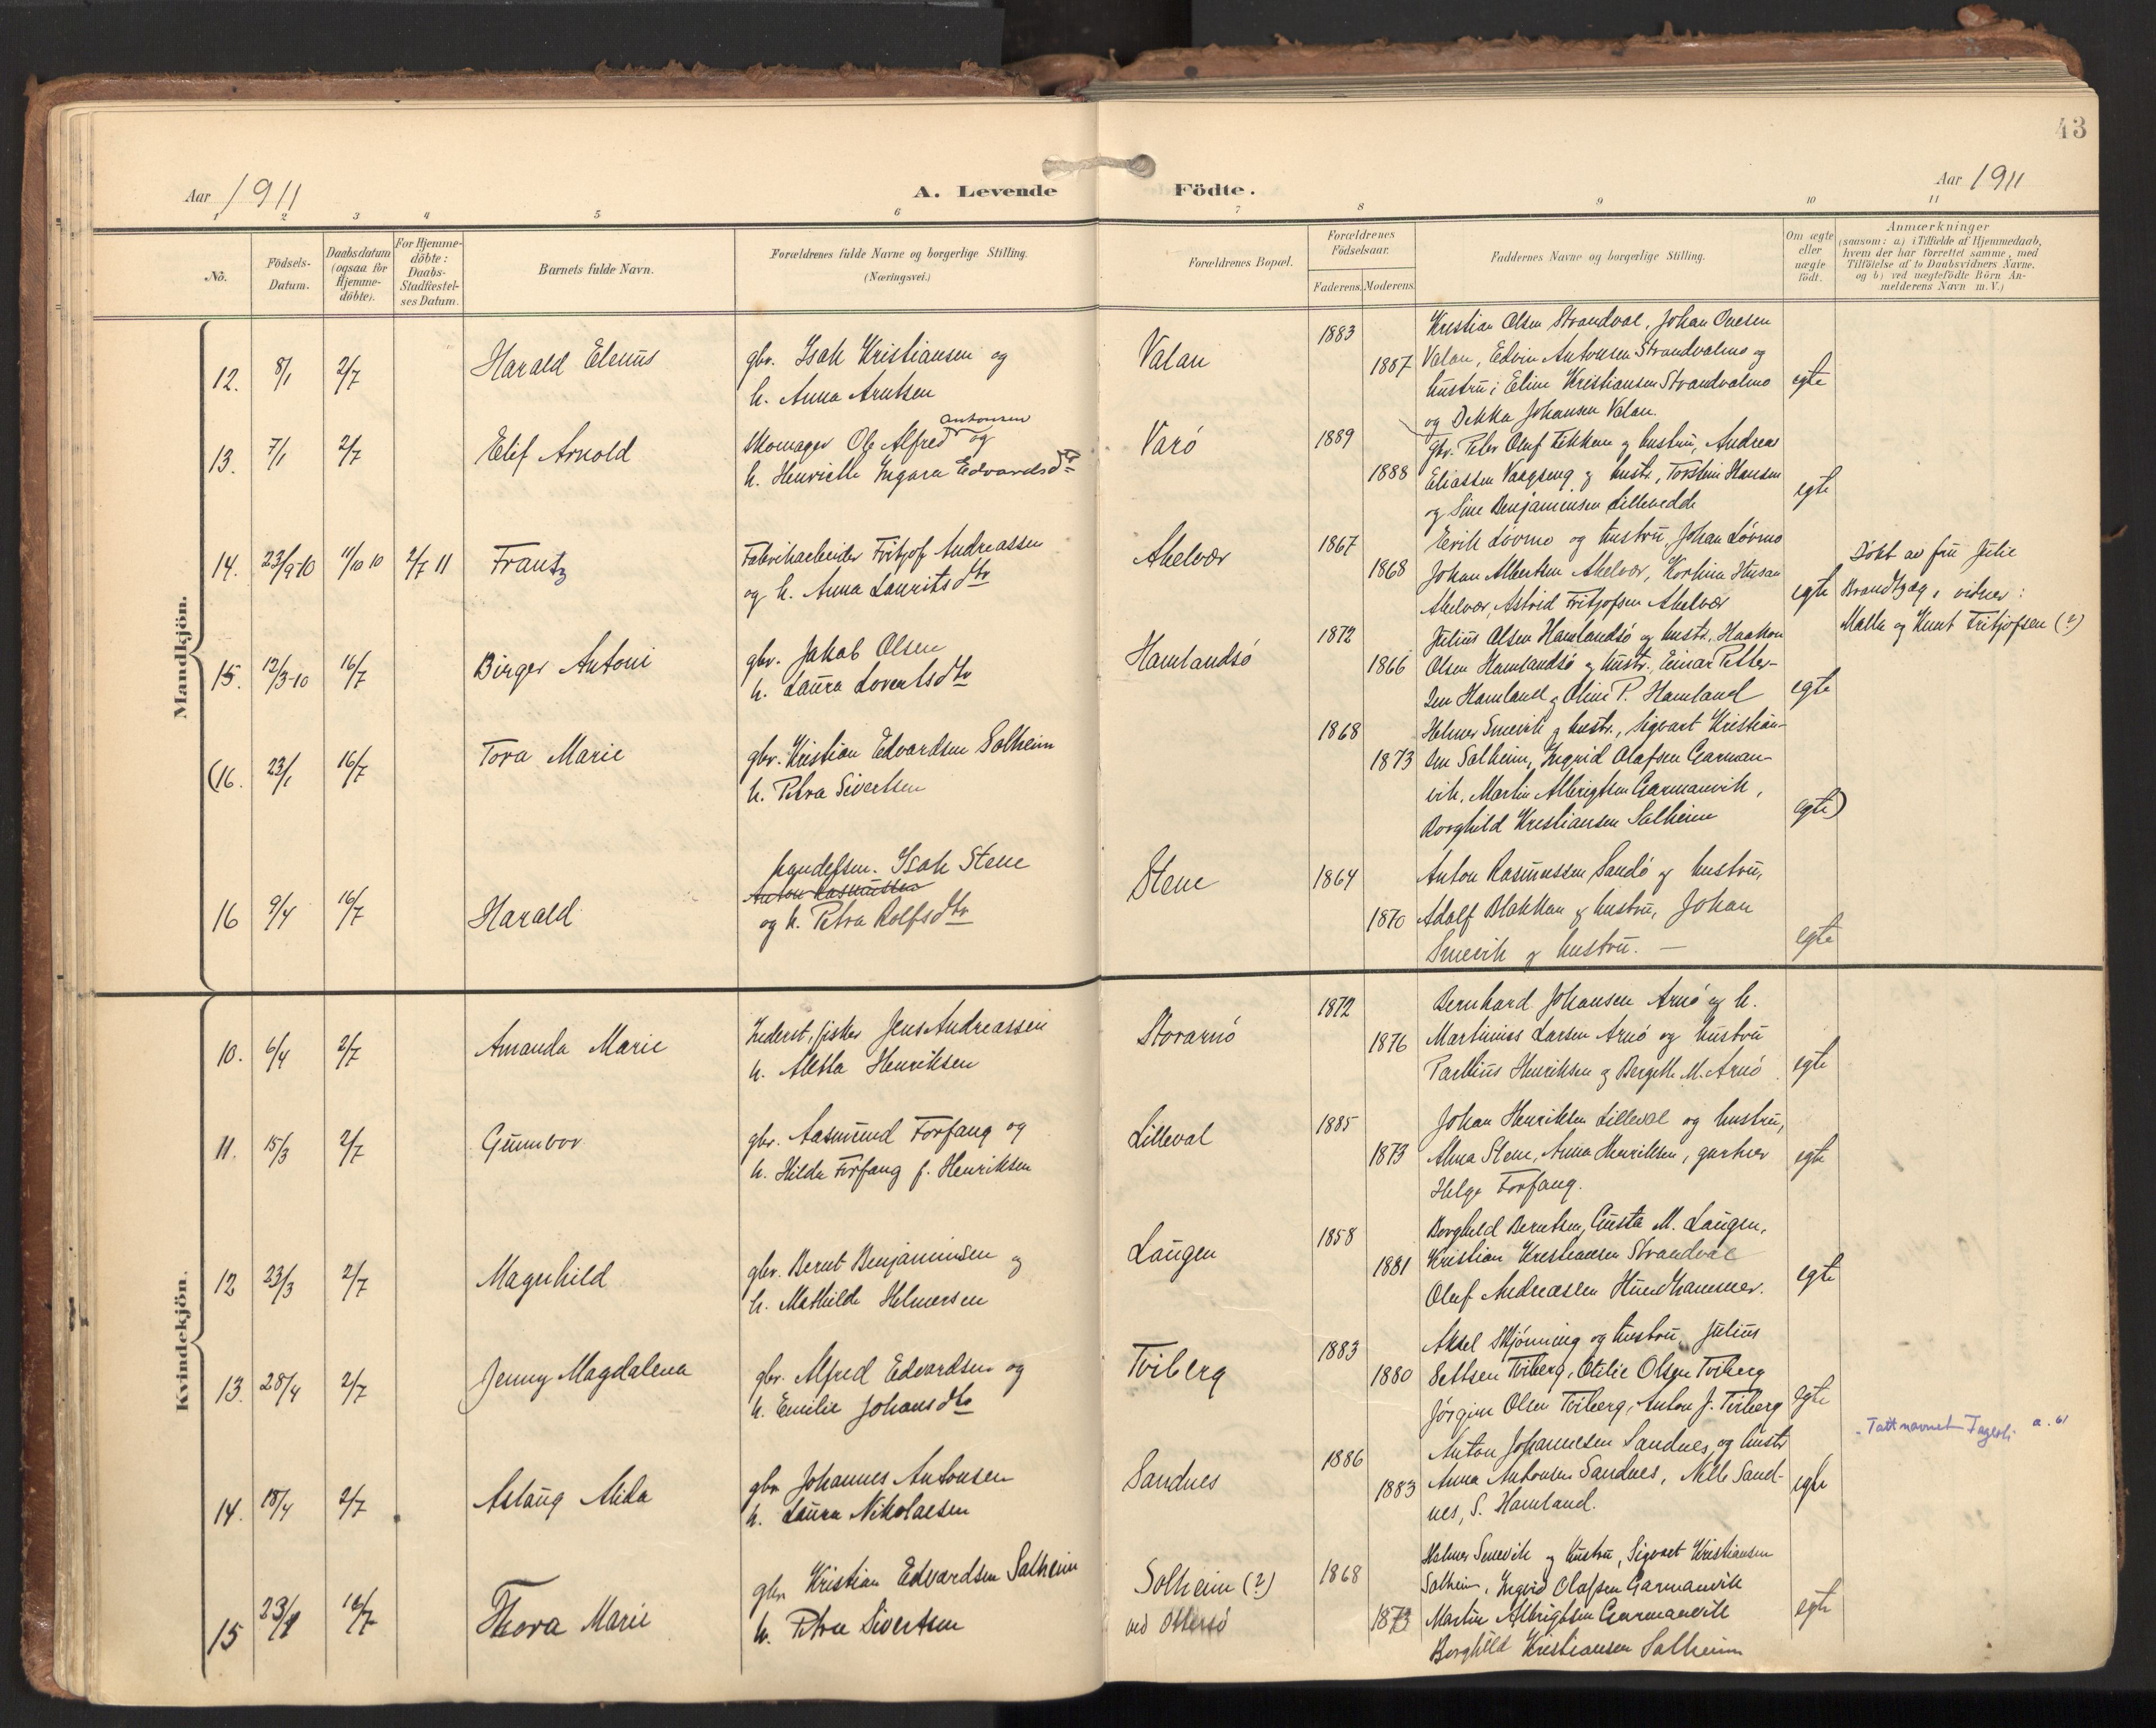 43
Aar 1911
A. Levende Födte.
Aar 1911
1 2 3 4 5 6 7 8 9 10 11
No.
Födsels-
Datum.
Daabsdatum
(ogsaa for
Hjemme-
döbte).
For Hjemme-
döbte:
Daabs-
Stadfæstel-
ses Datum.
Barnets fulde Navn.
Forældrenes fulde Navne og borgerlige Stilling.
(Næringsvei.)
Forældrenes Bopæl.
Forældrenes
Födselsaar.
Faderens. Moderens.
Faddernes Navne og borgerlige Stilling.
Om ægte
eller
uægte
födt.
Anmærkninger
(saasom: a) i Tilfælde af Hjemmedaab,
hvem der har forrettet samme, med
Tilföielse af to Daabsvidners Navne.
og b) ved uægtefödte Börn An-
melderens Navn m. V.)
Mandkjön.
12. 8/1 2/7 Harald Elenus
gbr. Isak Kristiansen og
h. Anna Arntsen
Valan
1883
1887
Kristian Olsen Strandval, Johan
Valan, Edvin Antonsen Strandvalmo og
hustru; Eline Kristiansen Strandvalmo
og Johansen Valan.
egte
13. 7/1 2/7 Elif Arnold
Skomager Ole Alfred Antonsen og
h. Henriette Ingara Edvardsdtr
Varö
1889
1888
Gbr. Peter Oluf og hustru, Andreas
Eliassen og hustr., Torstein Hansen
og Sine Benjaminsen
egte
14. 23/9-10 11/10 10 2/7 11 Frantz
Fabrikarbeider Fritjof Andreassen
og h. Anna Lauritsdtr
Abelvær
1867
1868
Erik Lövmo og hustru, Johan Lövmo
Johan Albertsen Abelvær,
Abelvær, Astrid Fritjofsen Abelvær
egte
Döbt av fru Julie
Brandtzæg, vidner:
Malla og Knut Fritjofsen (?)
15. 12/3-10 16/7 Birger Antoni
gbr. Jakob Olsen
h. Laura Lorentsdtr
Hamlandsö
1872
1866
Julius Olsen Hamlandsö og hustr., Haakon
Olsen Hamlandsö og hustr. Einar Petter-
sen Hamland og Oline P. Hamland
egte
(16. 23/1 16/7 Tora Marie
gbr. Kristian Edvardsen Solheim
h. Petra Sivertsen
1868
1873
Helmer Smevik og hustr., Sigvart Kristian-
sen Solheim, Ingrid Olafsen Garman-
vik, Martin Albrigtsen Garmanvik,
Borghild Kristiansen Solheim
egte)
16 9/4 16/7 Harald
handelsm. Isak Stene
Anton Rasmussen
og h. Petra Rolfsdtr
Stene
1864
1870
Anton Rasmussen Sandö og hustru,
Adolf Blakkan og hustru, Johan
Smevik og hustru. —
egte
Kvindekjön.
10. 6/4 2/7 Amanda Marie
Inderst, fisker Jens Andreassen
h. Aletta Henriksen
Storarnö
1872
1876
Bernhard Johansen Arnö og h.
Martinius Larsen Arnö og hustru
Parelius Henriksen og Bergitte M. Arnö
egte
11. 15/3 2/7 Gunnvor
gbr. Aasmund Forfang og
h. Hilda Forfang f. Henriksen
Lilleval
1885
1873
Johan Henriksen Lilleval og hustru,
Alma Stene, Anna Henriksen,
Helge Forfang.
egte
12 23/3 2/7 Magnhild
gbr. Bernt Benjaminsen og
h. Mathilde Helmersen
Laugen
1858
1881
Borghild Berntsen, Gusta M. Laugen,
Kristian Kristiansen Strandval
Oluf Andreassen Hundhammer.
egte
13. 28/4 2/7 Jenny Magdalena
gbr. Alfred Edvardsen og
h. Emilie Johansdtr
Tviberg
1883
1880
Aksel Skjönning og hustru, Julius
Tviberg, Otilie Olsen Tviberg
Jörgine Olsen Tviberg, Anton J. Tviberg
egte
14. 18/4 2/7 Aslaug Alida
gbr. Johannes Antonsen
h. Laura Nikolaisen
Sandnes
1886
1883
Anton Johannesen Sandnes og hustr
Anna Antonsen Sandnes, Sand-
nes, S. Hamland.
egte
Tatt navnet Fagerli
15 23/1 16/7 Thora Marie
gbr Kristian Edvardsen Solheim
h. Petra Sivertsen
Solheim (?)
ved Ottersö
1868
1873
Helmer Smevik og hustru, Sigvart Kristiansen
Solheim, Ingrid Olafsen Garmanvik
Martin Albrigtsen Garmanvik
Borghild Kristiansen Solheim
egte